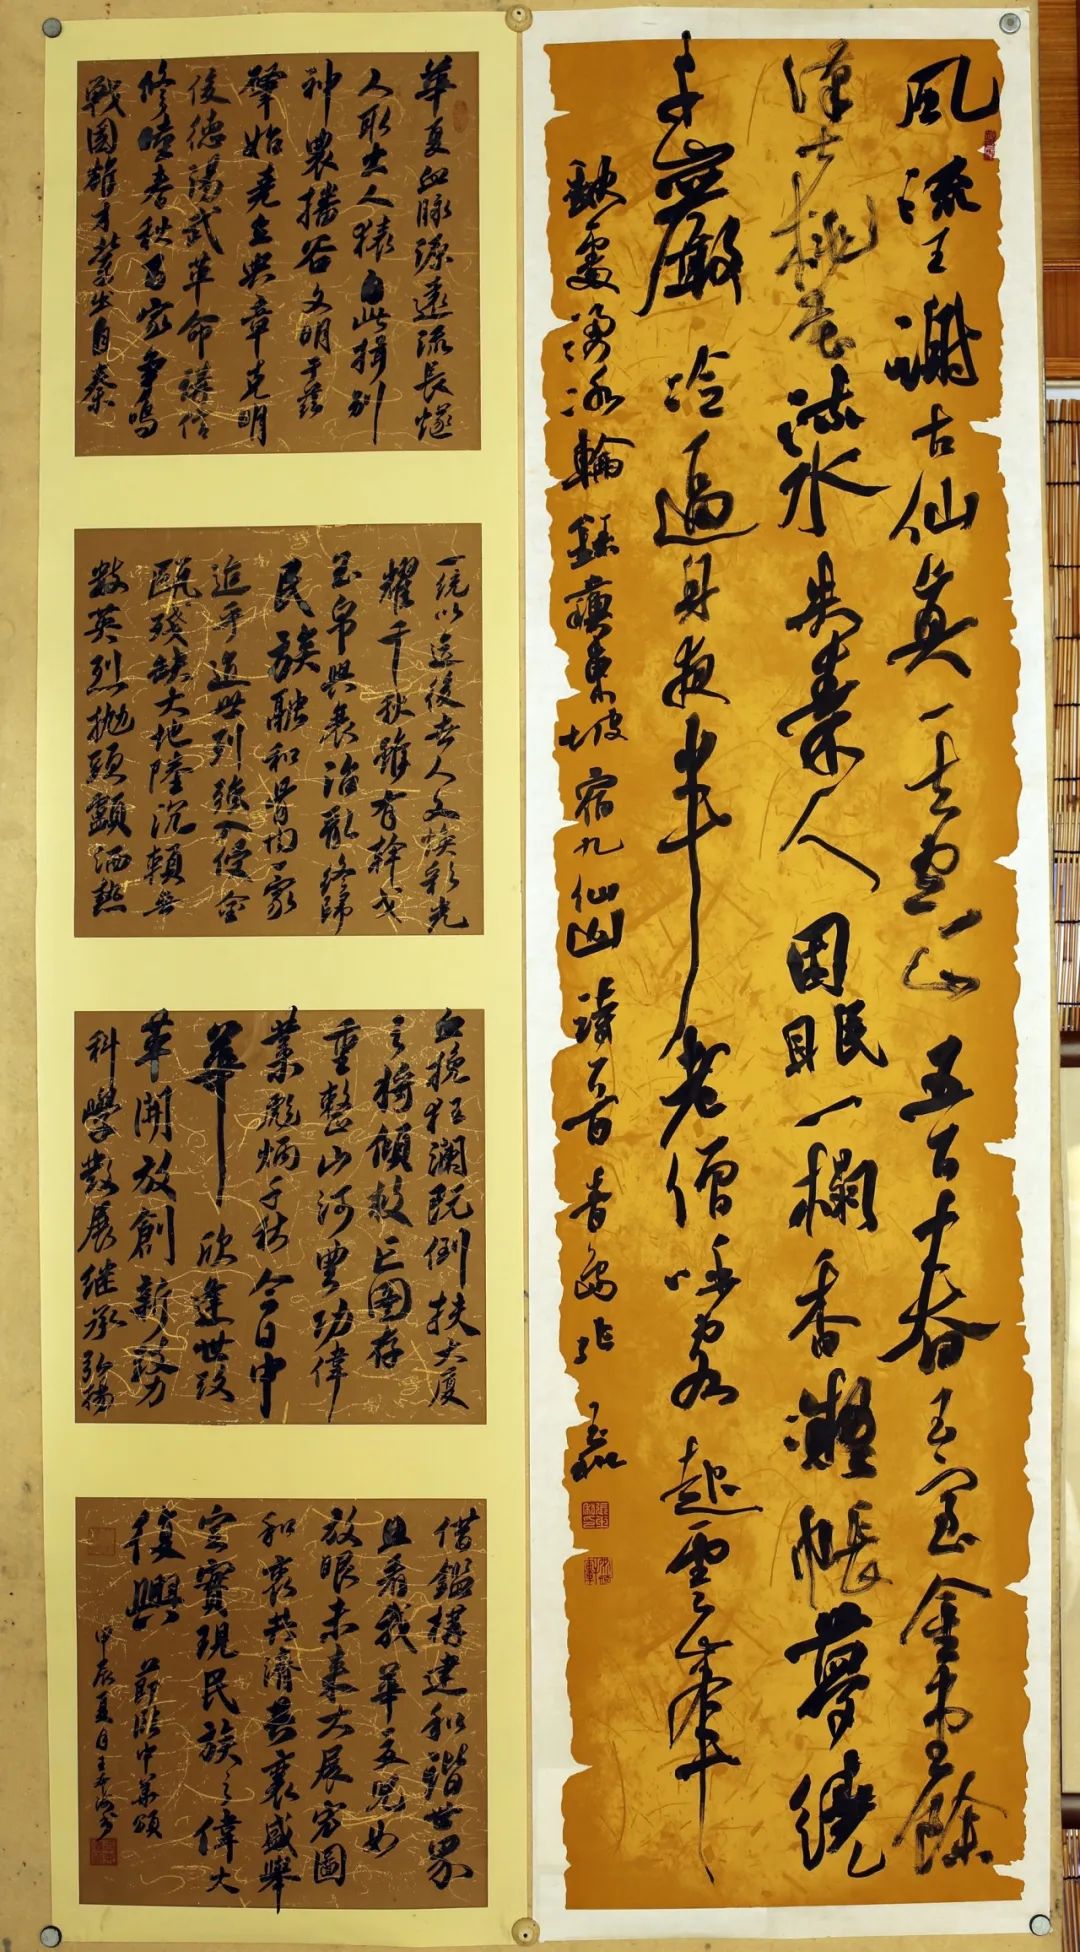 風流王謝古仙真一去空山五百春玉室金堂餘
漢士桃花流水失秦人困眠一榻香凝帳夢繞
千巖冷逼身夜半老僧呼客起雲峰
缺處湧冰輪 錄蘇東坡宿九仙山詩一首 青島張玉
華夏血脉源遠流長燧
人取火人猿自此揖別
神農播谷文明于茲
肇始堯立典章克明
俊德湯武革命講信
修睦春秋百家爭鳴
戰國雄才輩出自秦
一統以迄後世人文煥彩光
耀千秋雖有幹戈
玉帛興衰治亂終歸
民族融和骨肉一家
迨乎近世列強入侵金
甌殘缺大地陸沉賴無
數英烈拋頭顱洒熱
血挽狂瀾既倒扶大廈
之將傾救亡圖存
重整山河豐功偉
業彪炳千秋今日中
華欣逢世改
革開放創新致力
科學發展继承弘揚
借鑑構建和諧世界
且看我華夏兒女
放眼未來大展宏圖
和衷共濟共襄盛舉
定實現民族之偉大
復興 節臨中華頌
甲辰夏月王海書